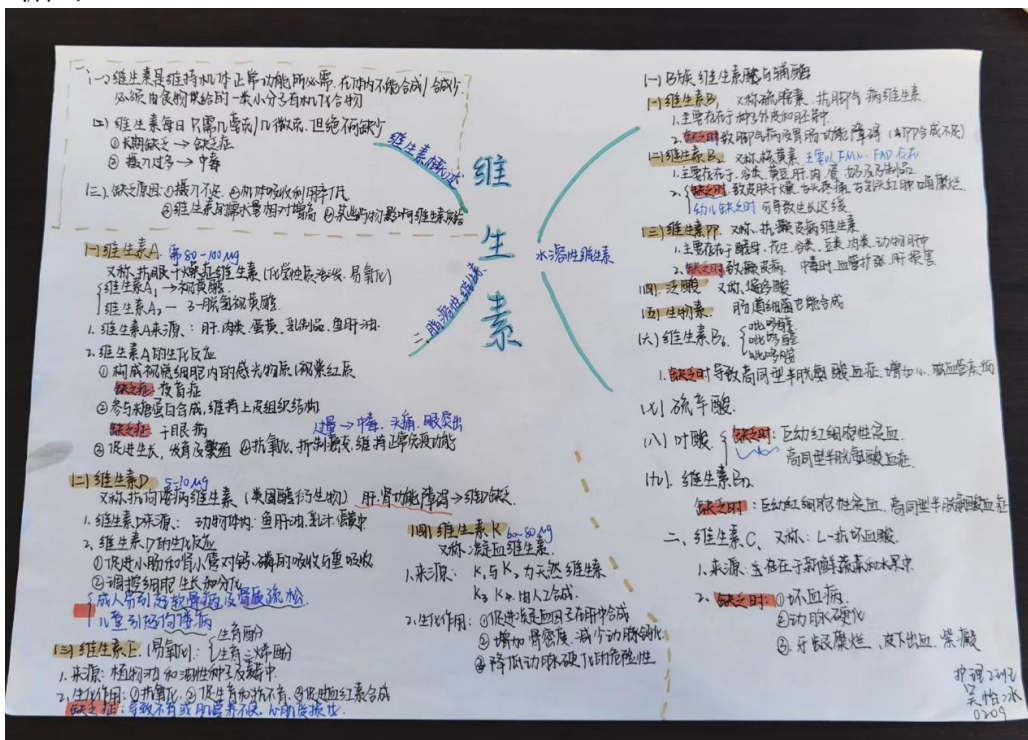 (一)维生素是维持机体正常功能所必需,在体内不能合成/合成少
必须由食物供给的一类小分子有机化合物
(二)维生素每日只需几毫克/几微克,但绝不可缺少
①长期缺乏→缺乏症
②摄入过多→中毒
(三)缺乏原因:①摄入不足 ②机体吸收利用率低
③维生素的需求量相对增高 ④某些药物影响维生素
维生素概述
维生素
二、脂溶性维生素
水溶性维生素
(一)维生素A 需80-100μg
又称抗眼干燥症维生素(化学性质活泼、易氧化)
维生素A₁→视黄醇
维生素A₂—3-脱氢视黄醇
1.维生素A来源:肝、肉类、蛋黄、乳制品、鱼肝油
2.维生素A的生化反应
①构成视觉细胞内的感光物质(视紫红质
缺乏症 夜盲症
②参与糖蛋白合成,维持上皮组织结构
缺乏症 干眼病
过量→中毒、头痛、眼突出
③促进生长,发育及繁殖 ④抗氧化,抑制癌变,维持正常免疫功能
(二)维生素D 5-10μg
又称抗佝偻病维生素(类固醇衍生物)肝、肾功能障碍→维D缺乏
1.维生素D来源:动物体内:鱼肝油、乳汁、蛋黄中
2.维生素D的生化反应
①促进小肠和肾小管对钙、磷的吸收与重吸收
②调控细胞生长和分化
成人易引起软骨病及骨质疏松
儿童引起佝偻病
(三)维生素E(易氧化):
生育酚
生育三烯酚
1.来源:植物油和油性种子及麦芽中
2.生化作用:①抗氧化 ②促生育和抗不育 ③促进血红素合成
缺乏症:导致不育或肌营养不良、心肌受损
(四)维生素K 60-80μg
又称凝血维生素
1.来源:K₁与K₂为天然维生素
K₃ K₄ 由人工合成
2.生化作用:①促进凝血因子在肝中合成
②增加骨密度、减少动脉钙化
③降低动脉硬化的危险性
(一)B族维生素酶与辅酶
(一)维生素B₁ 又称硫胺素、抗脚气病维生素
1.主要存在于种子外皮和胚芽中
2.缺乏时致脚气病及胃肠功能障碍(APP合成不足)
(二)维生素B₂ 又称核黄素 主要以FMN、FAD存在
1.主要存在于:谷类、黄豆、肝、肉、蛋、奶及奶制品
幼儿缺乏时可导致生长迟缓
(三)维生素PP 又称抗癞皮病维生素
1.主要存在于酵母、花生、谷类、豆类、肉类、动物肝中
2.缺乏时致癞皮病 中毒时血管扩张、肝损害
(四)泛酸 又称遍多酸
(五)生物素 肠道细菌也能合成
(六)维生素B₆
吡哆醇
吡哆醛
吡哆胺
1.缺乏时导致高同型半胱氨酸血症,增加心、脑血管疾病
(七)硫辛酸
(八)叶酸
缺乏时:巨幼红细胞性贫血
高同型半胱氨酸血症
(九)维生素B₁₂
缺乏时:巨幼红细胞性贫血、高同型半胱氨酸血症
二、维生素C、又称:L-抗坏血酸
1.来源:主存在于新鲜蔬菜和水果中
2.缺乏时:①坏血病
②动脉硬化
③牙龈糜烂、皮下出血、紫癜
0209